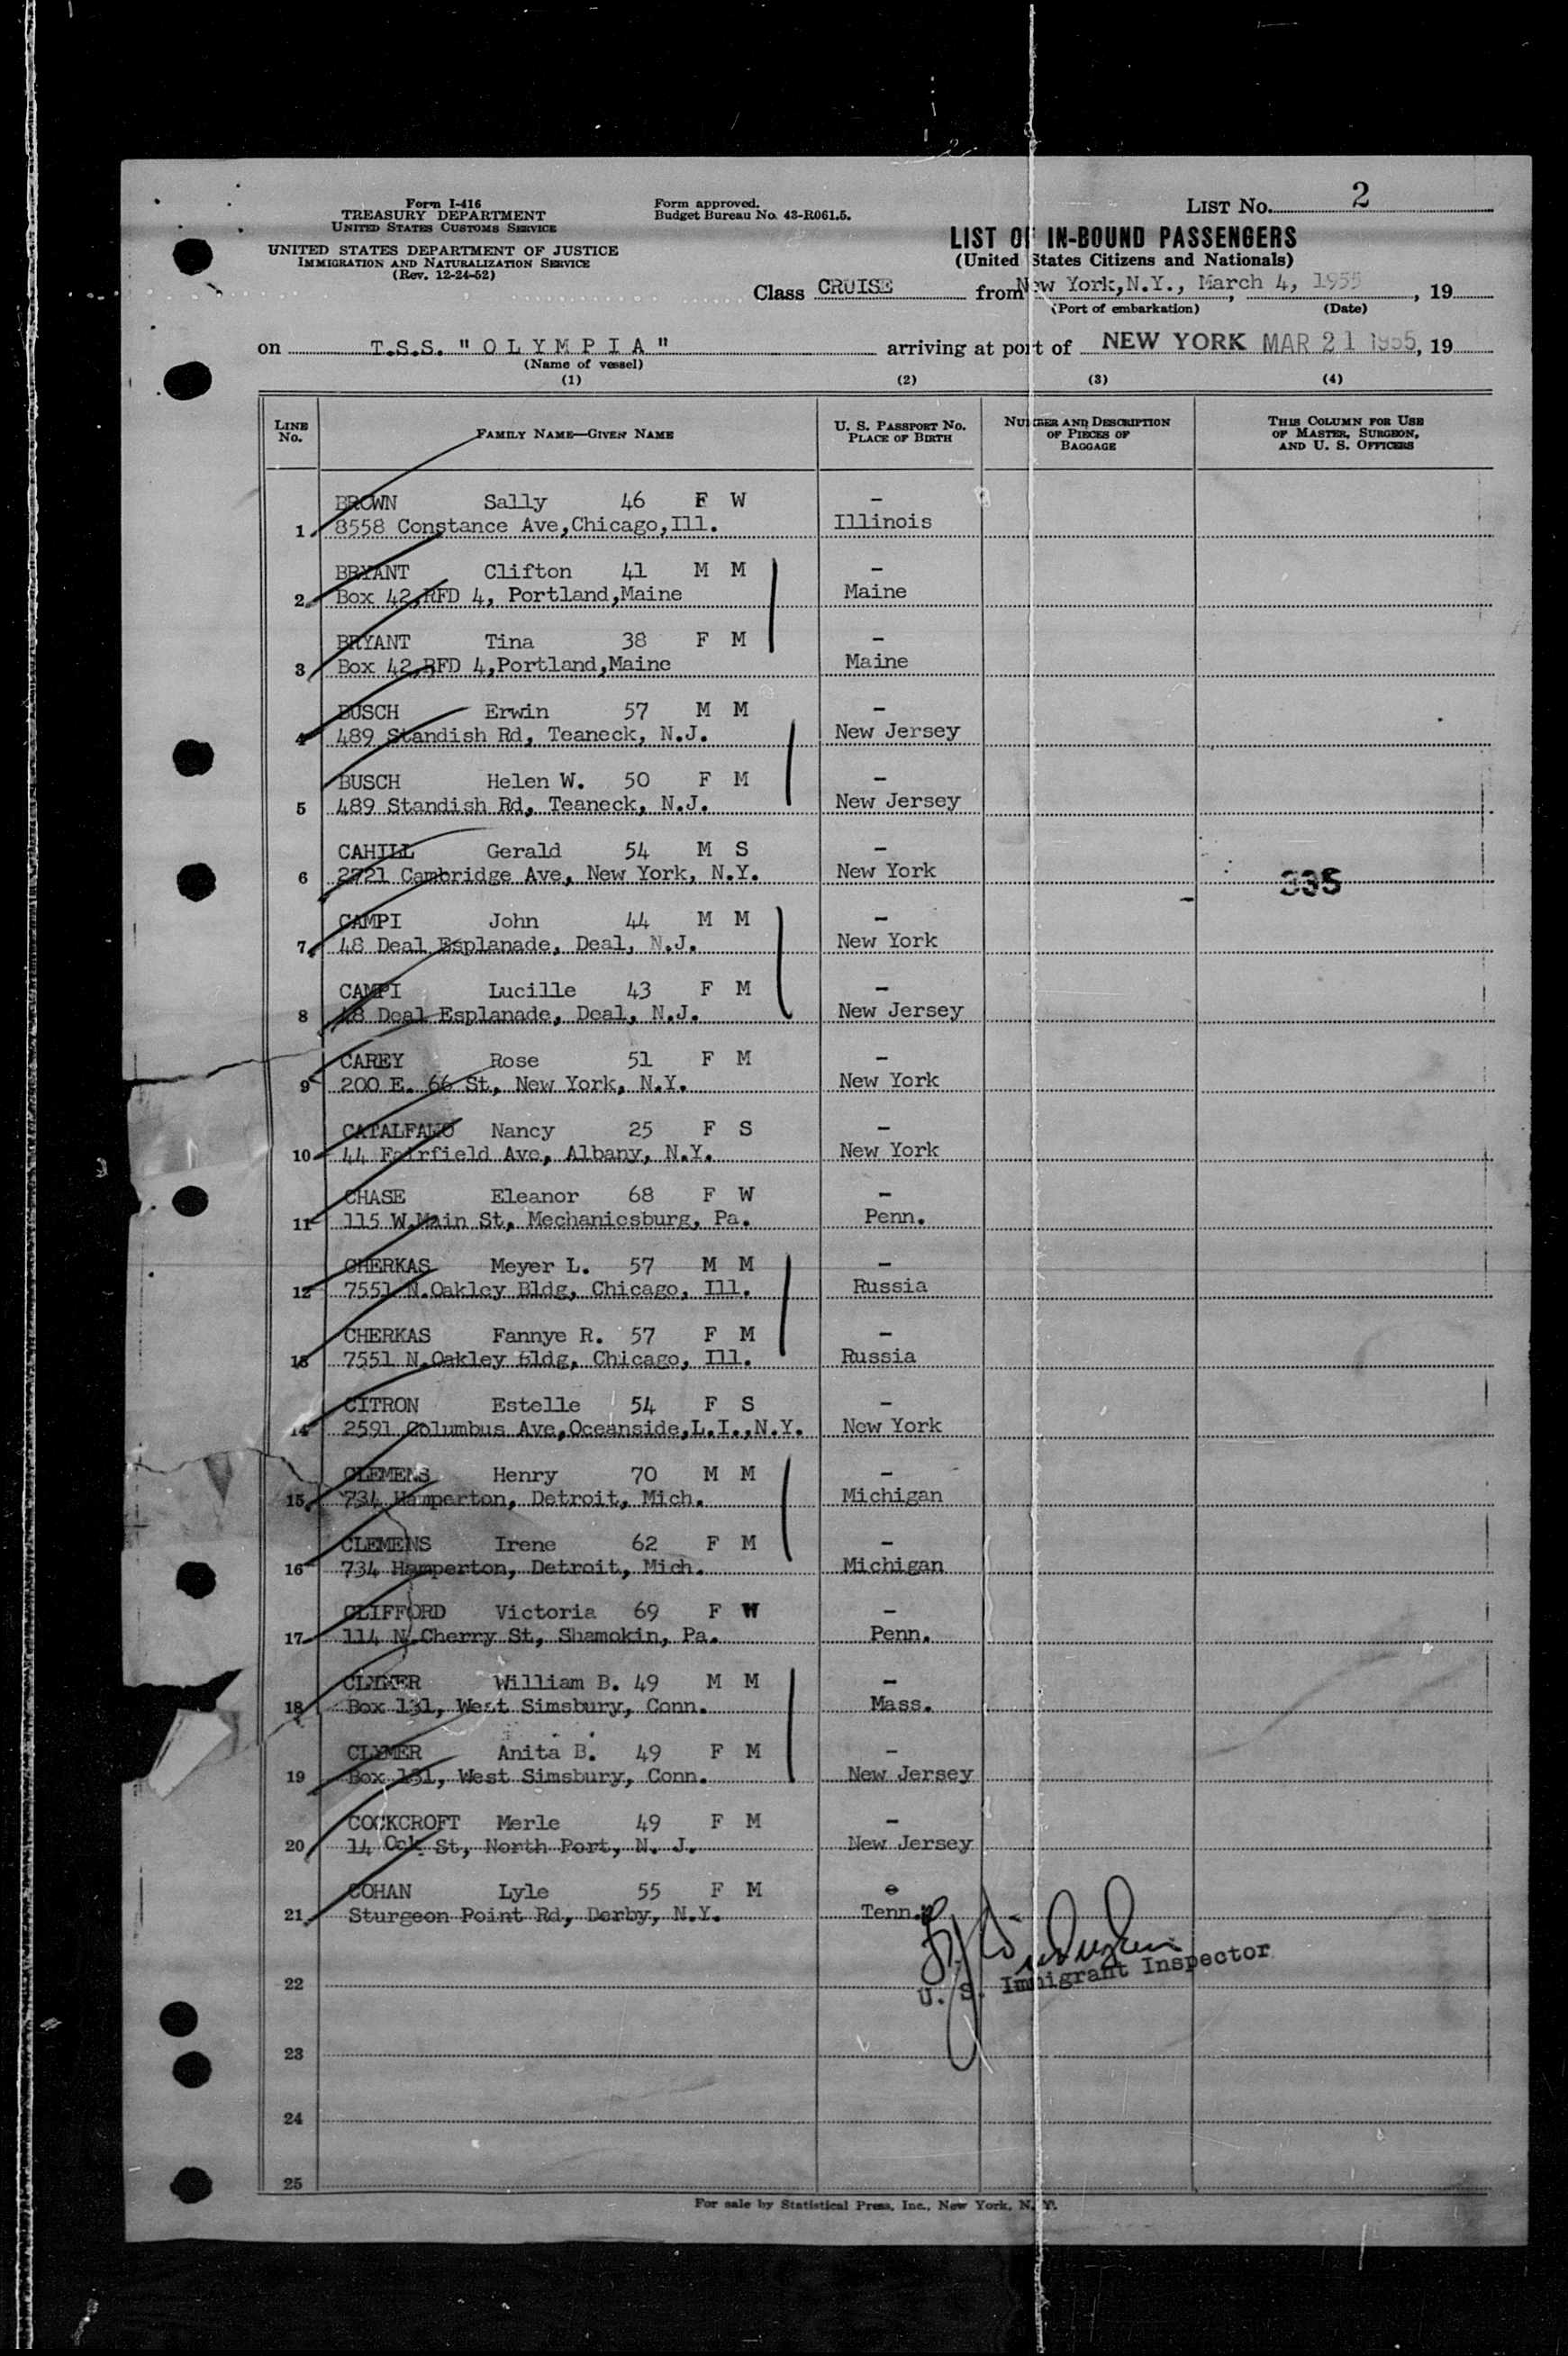 Form I-416
TREASURY DEPARTMENT
UNITED STATES CUSTOMS SERVICE
UNITED STATES DEPARTMENT OF JUSTICE
IMMIGRATION AND NATURALIZATION SERVICE
(Rev. 12-24-52)
Form approved.
Budget Bureau No. 43-R061.5.
LIST No. 2
LIST OF IN-BOUND PASSENGERS
(United States Citizens and Nationals)
Class CRUISE from New York, N.Y., March 4, 1955, 19
(Port of embarkation) (Date)
on T.S.S. "OLYMPIA" arriving at port of NEW YORK MAR 21 1955, 19
(Name of vessel)
(1) (2) (3) (4)
LINE No. FAMILY NAME—GIVEN NAME U. S. PASSPORT No. PLACE OF BIRTH NUMBER AND DESCRIPTION OF PIECES OF BAGGAGE THIS COLUMN FOR USE OF MASTER, SURGEON, AND U. S. OFFICERS
BROWN Sally 46 F W -
1 8558 Constance Ave,Chicago,Ill. Illinois
BRYANT Clifton 41 M M -
2 Box 42,RFD 4, Portland,Maine Maine
BRYANT Tina 38 F M -
3 Box 42,RFD 4,Portland,Maine Maine
BUSCH Erwin 57 M M -
4 489 Standish Rd, Teaneck, N.J. New Jersey
BUSCH Helen W. 50 F M -
5 489 Standish Rd, Teaneck, N.J. New Jersey
CAHILL Gerald 54 M S -
6 2721 Cambridge Ave, New York, N.Y. New York 335
CAMPI John 44 M M -
7 48 Deal Esplanade, Deal, N.J. New York
CAMPI Lucille 43 F M -
8 48 Deal Esplanade, Deal, N.J. New Jersey
CAREY Rose 51 F M -
9 200 E. 66 St, New York, N.Y. New York
CATALFAMO Nancy 25 F S -
10 44 Fairfield Ave, Albany, N.Y. New York
CHASE Eleanor 68 F W -
11 115 W.Main St, Mechanicsburg, Pa. Penn.
CHERKAS Meyer L. 57 M M -
12 7551 N.Oakley Bldg, Chicago, Ill. Russia
CHERKAS Fannye R. 57 F M -
13 7551 N.Oakley Bldg, Chicago, Ill. Russia
CITRON Estelle 54 F S -
14 2591 Columbus Ave,Oceanside,L.I.,N.Y. New York
CLEMENS Henry 70 M M -
15 734 Hamperton, Detroit, Mich. Michigan
CLEMENS Irene 62 F M -
16 734 Hamperton, Detroit, Mich. Michigan
CLIFFORD Victoria 69 F W -
17 114 N.Cherry St, Shamokin, Pa. Penn.
CLYMER William B. 49 M M -
18 Box 131, West Simsbury, Conn. Mass.
CLYMER Anita B. 49 F M -
19 Box 131, West Simsbury, Conn. New Jersey
COCKCROFT Merle 49 F M -
20 14 Oak St, North Port, N. J. New Jersey
COHAN Lyle 55 F M -
21 Sturgeon Point Rd, Derby, N.Y. Tenn.
U. S. Immigrant Inspector
22
23
24
25
For sale by Statistical Press, Inc., New York, N. Y.